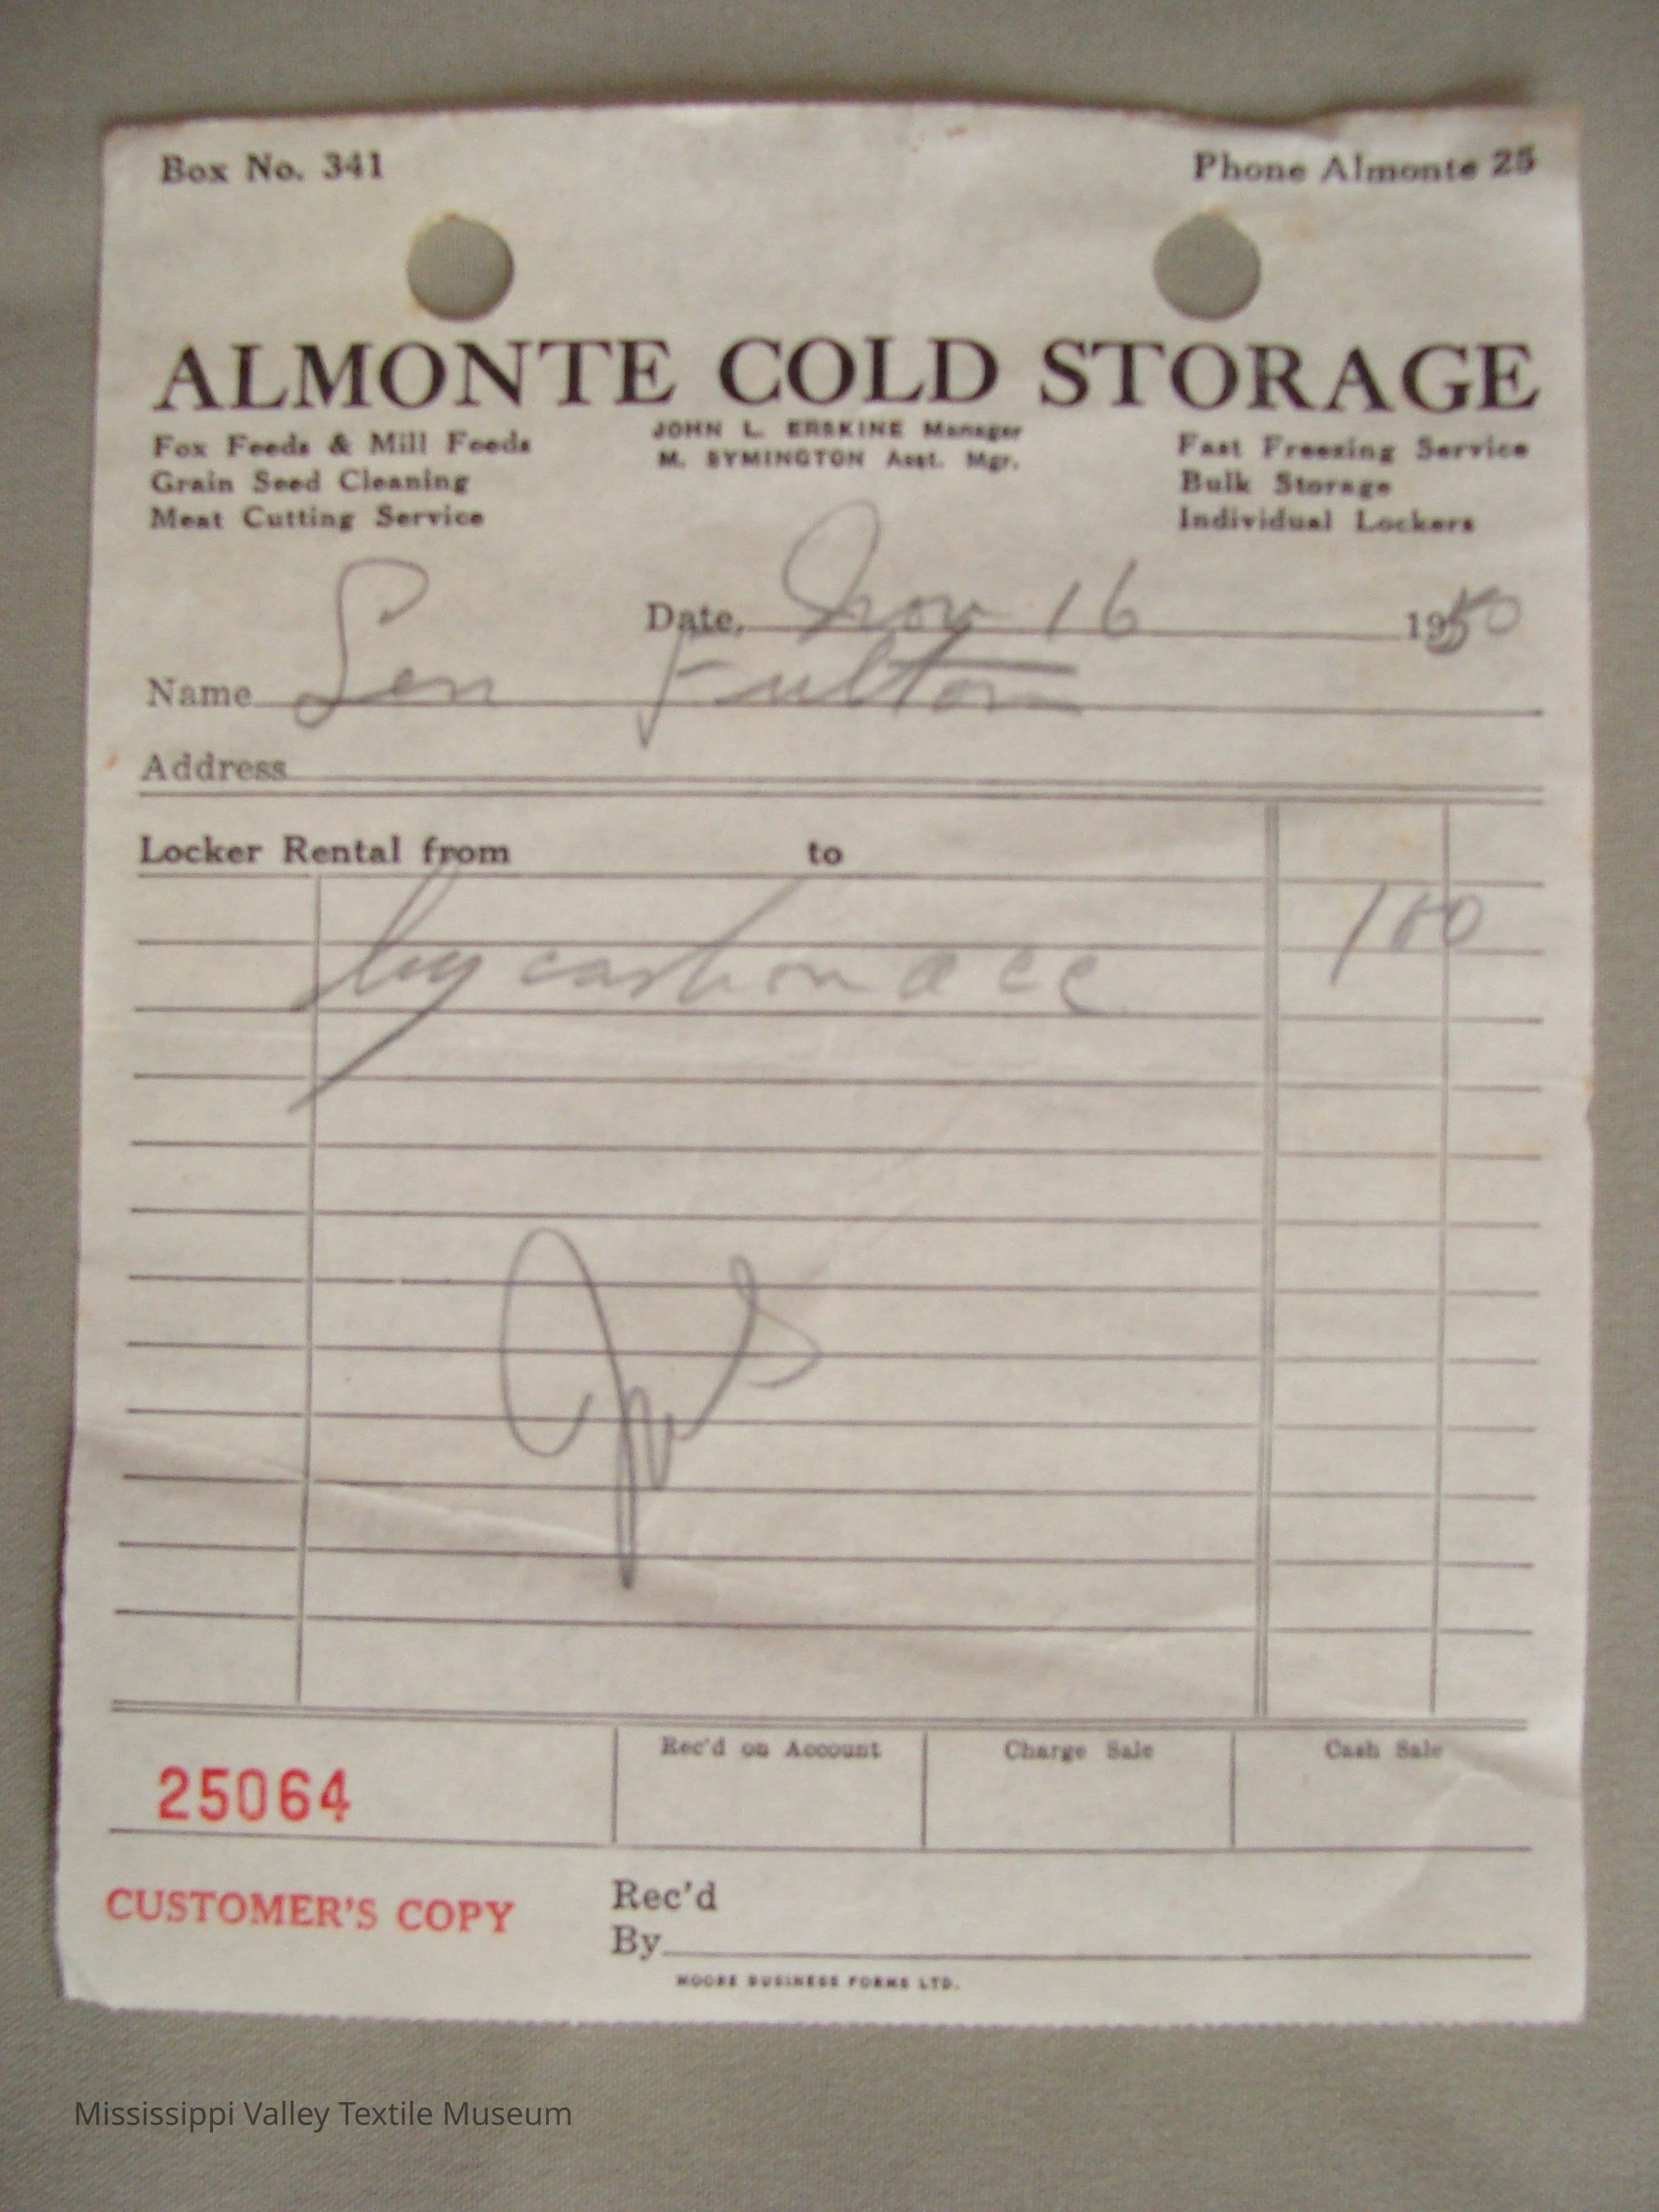 Box No. 341 Phone Almonte 25
ALMONTE COLD STORAGE
Fox Feeds & Mill Feeds
Grain Seed Cleaning
Meat Cutting Service
JOHN L. ERSKINE Manager
M. SYMINGTON Asst. Mgr.
Fast Freezing Service
Bulk Storage
Individual Lockers
Date, Nov 16 1950
Name Len Fulton
Address
Locker Rental from to
by cash on acc 100
25064
Rec'd on Account Charge Sale Cash Sale
CUSTOMER'S COPY
Rec'd
By
MOORE BUSINESS FORMS LTD.
Mississippi Valley Textile Museum